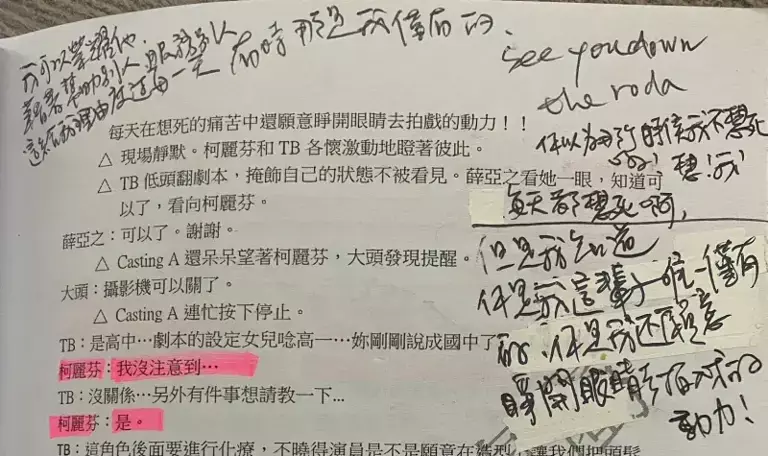 我可以榮耀他.
藉著幫助別人、服務別人
這是我有理由度過每一天
有時那是我僅有的.
see you down
the roda
每天在想死的痛苦中還願意睜開眼睛去拍戲的動力！！
△ 現場靜默。柯麗芬和 TB 各懷激動地瞪著彼此。
△ TB 低頭翻劇本，掩飾自己的狀態不被看見。薛亞之看她一眼，知道可
以了，看向柯麗芬。
薛亞之：可以了。謝謝。
△ Casting A 還呆呆望著柯麗芬，大頭發現提醒。
大頭：攝影機可以關了。
△ Casting A 連忙按下停止。
TB：是高中…劇本的設定女兒唸高一…妳剛剛說成國中了
柯麗芬：我沒注意到…
TB：沒關係…另外有件事想請教一下...
柯麗芬：是。
TB：這角色後面要進行化療，不曉得演員是不是願意在造型，讓我們把頭髮
你以為 時候我不想死
想！我
每天都想死啊,
但是我知道
你是我這輩子唯一僅有
的、你是我還願意
睜開眼睛去 的
動力！